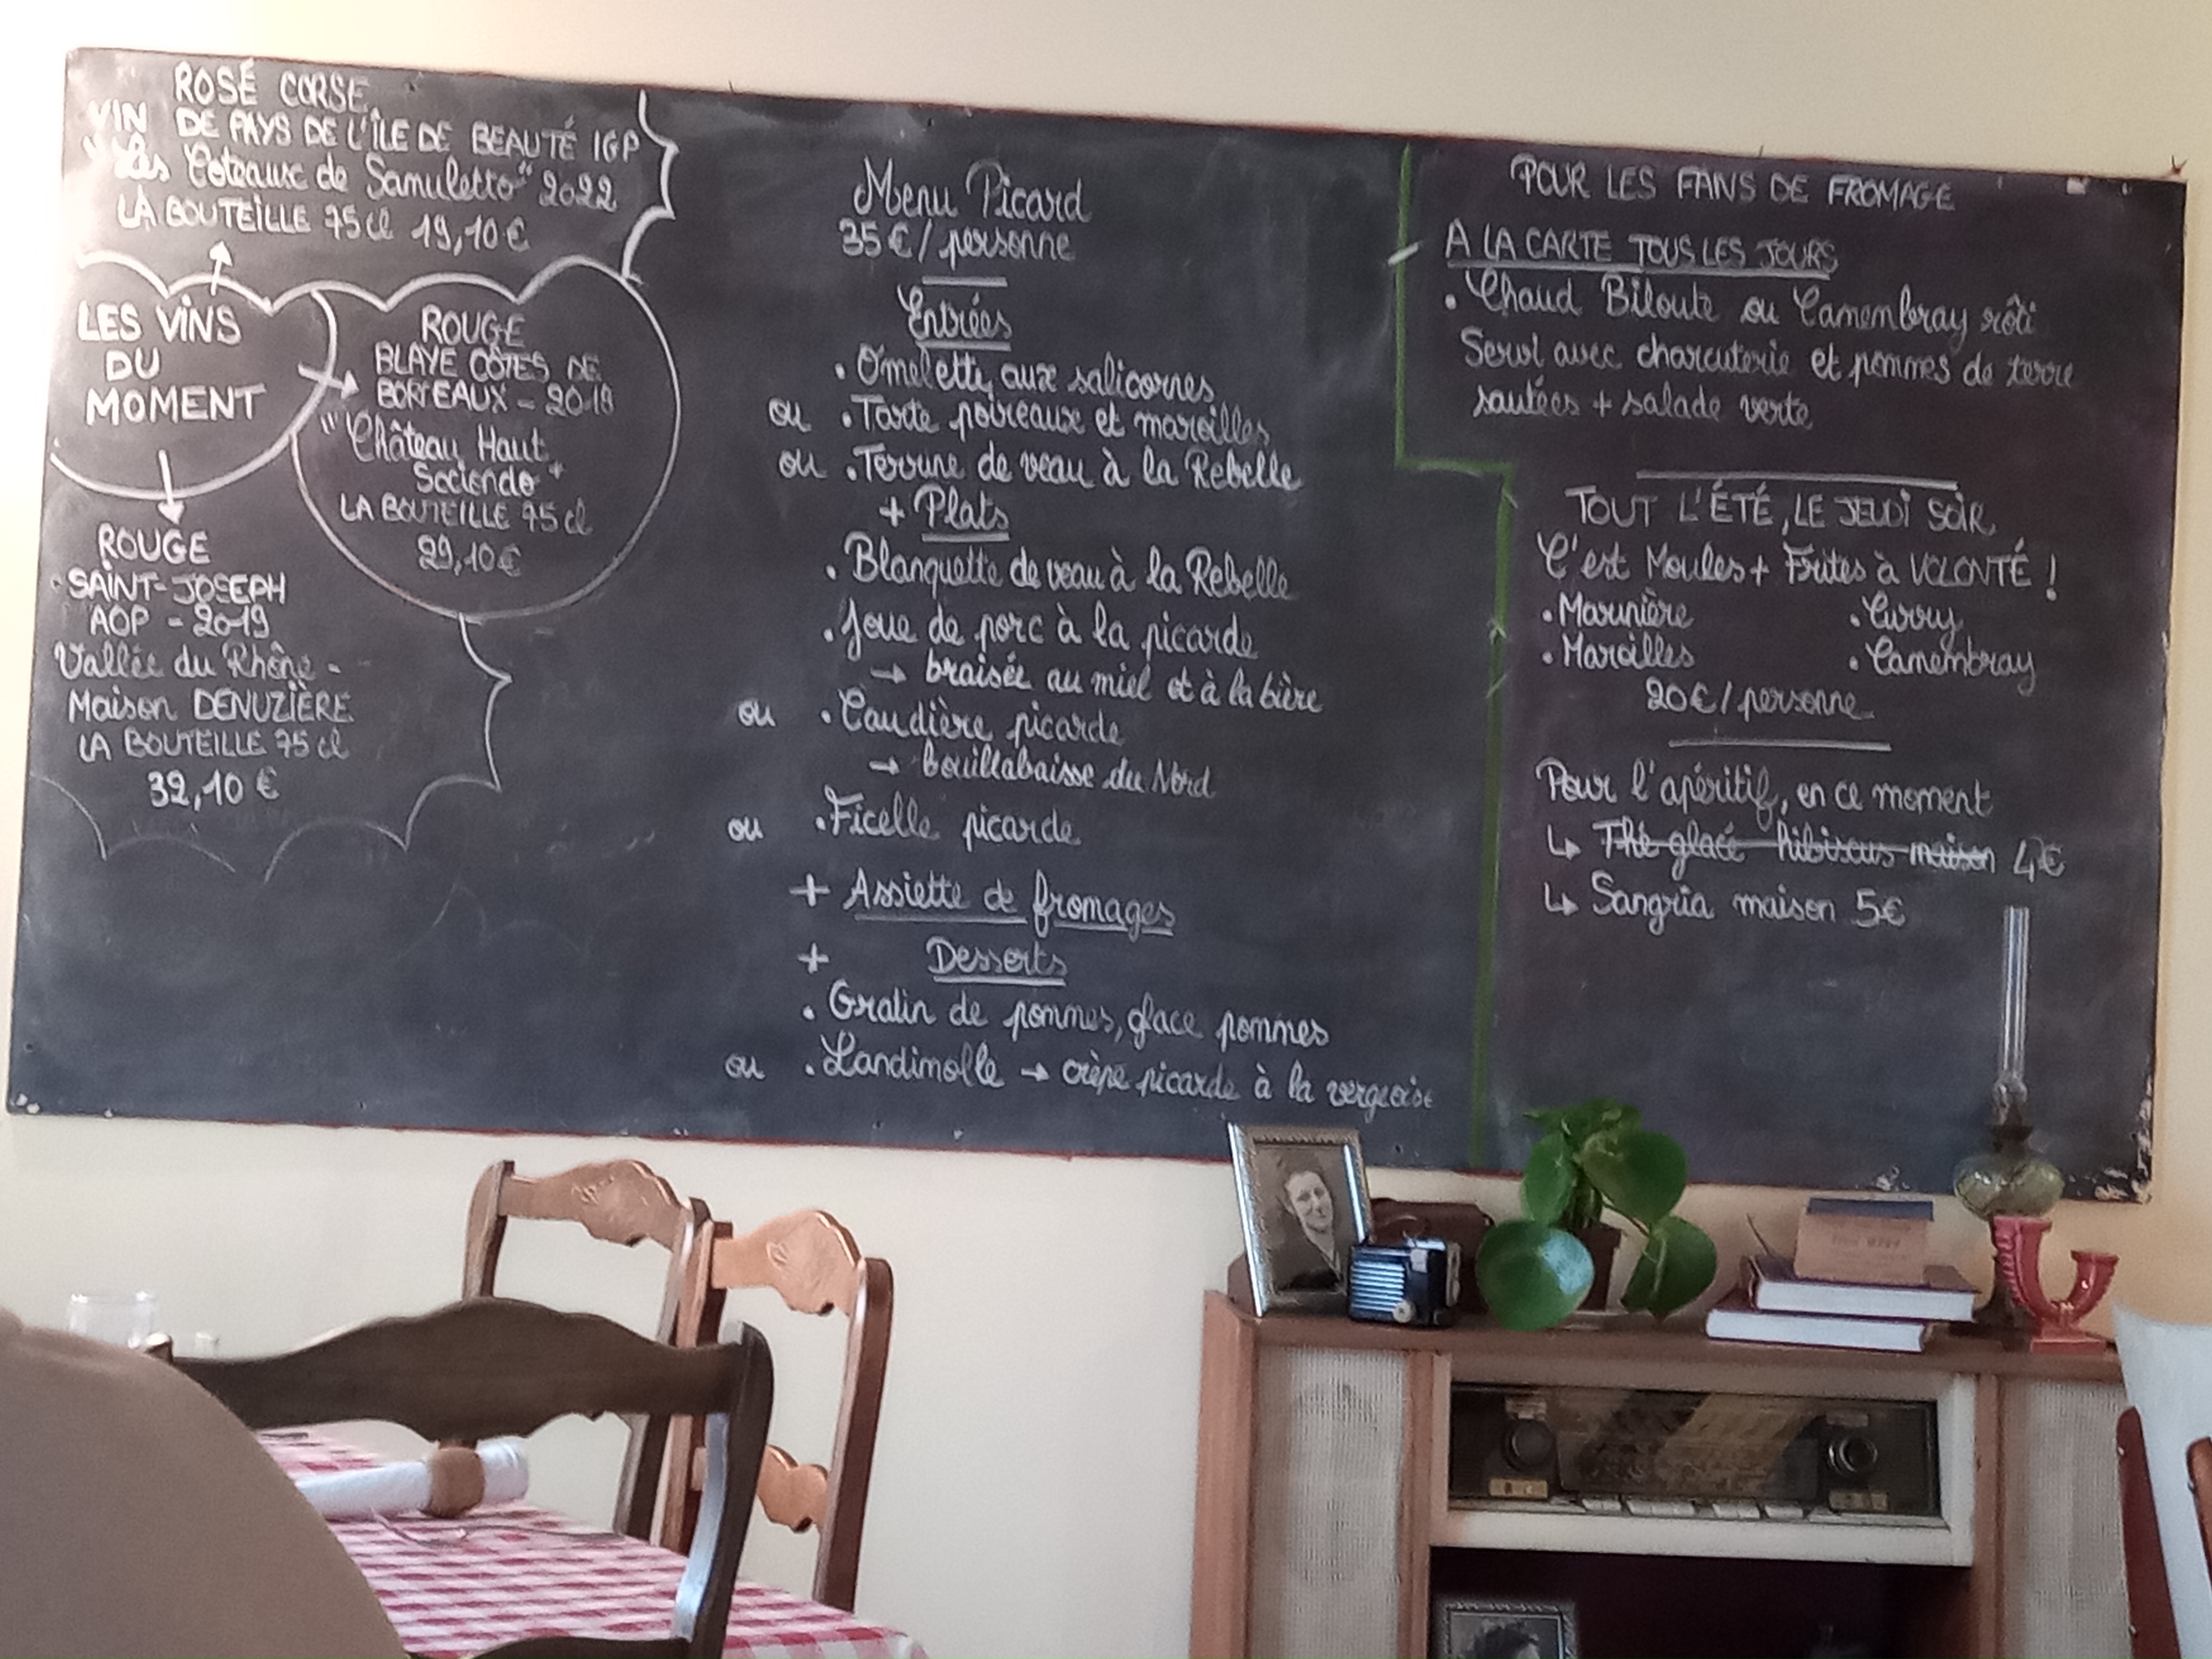 ROSÉ CORSE
VIN DE PAYS DE L'ÎLE DE BEAUTÉ IGP
"Les Coteaux de Samuletto" 2022
LA BOUTEILLE 75cl 19,10€
LES VINS
DU
MOMENT
ROUGE
BLAYE CÔTES DE
BORDEAUX - 2018
"Château Haut
Sociendo"
LA BOUTEILLE 75 cl
29,10€
ROUGE
SAINT-JOSEPH
AOP - 2019
Vallée du Rhône -
Maison DENUZIÈRE
LA BOUTEILLE 75 cl
32,10 €
Menu Picard
35€/personne
Entrées
. Omelette aux salicornes
ou . Tarte poireaux et maroilles
ou . Terrine de veau à la Rebelle
+ Plats
. Blanquette de veau à la Rebelle
. Joue de porc à la picarde
→ braisée au miel et à la bière
ou . Caudière picarde
→ bouillabaisse du Nord
ou . Ficelle picarde
+ Assiette de fromages
+ Desserts
. Gratin de pommes, glace pommes
ou . Landimolle → crèpe picarde à la vergeoise
POUR LES FANS DE FROMAGE
A LA CARTE TOUS LES JOURS
. Chaud Biloute ou Camembray rôti
Servi avec charcuterie et pommes de terre
sautées + salade verte
TOUT L'ÉTÉ, LE JEUDI SOIR
C'est Moules + Frites à VOLONTÉ !
. Marinière . Curry
. Maroilles . Camembray
20€/personne
Pour l'apéritif, en ce moment
↳ Thé glacé hibiscus maison 4€
↳ Sangria maison 5€